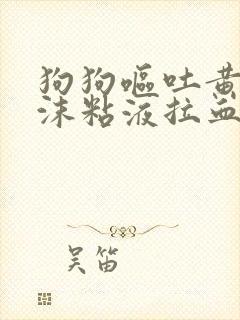 狗狗呕吐黄
沫粘液拉血
吴笛